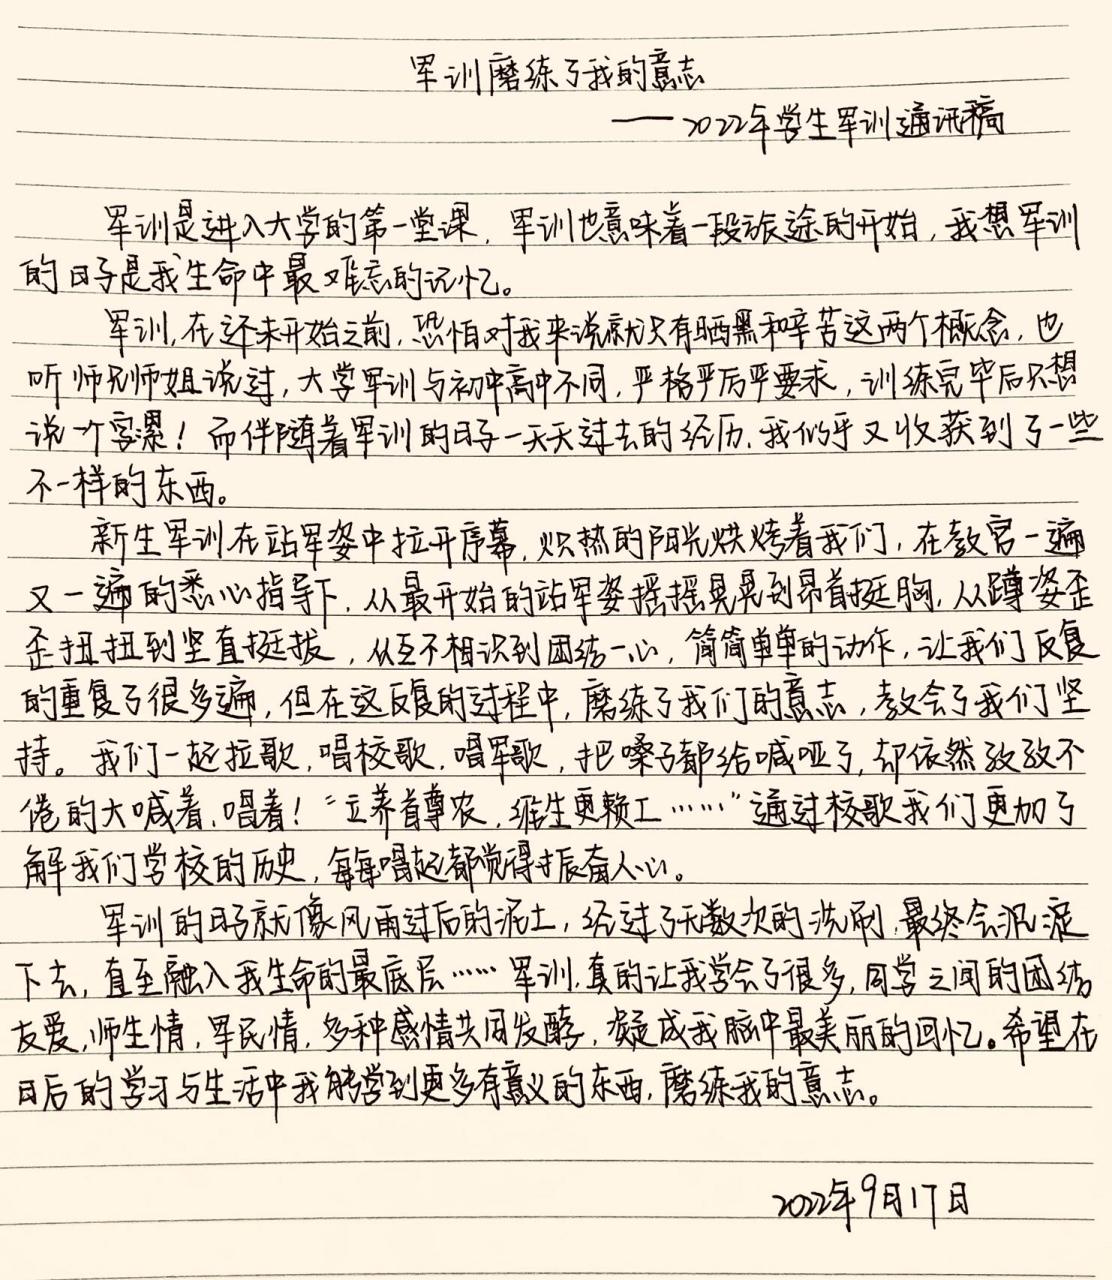 军训磨练了我的意志
——2022年学生军训通讯稿
军训是进入大学的第一堂课，军训也意味着一段旅途的开始，我想军训
的日子是我生命中最难忘的记忆。
军训，在还未开始之前，恐怕对我来说就只有晒黑和辛苦这两个概念，也
听师兄师姐说过，大学军训与初中高中不同，严格严厉严要求，训练完毕后只想
说一个字：累！而伴随着军训的日子一天天过去的经历，我似乎又收获到了一些
不一样的东西。
新生军训在站军姿中拉开序幕，炽热的阳光烘烤着我们，在教官一遍
又一遍的悉心指导下，从最开始的站军姿摇摇晃晃到昂首挺胸，从蹲姿歪
歪扭扭到坚直挺拔，从互不相识到团结一心，简简单单的动作，让我们反复
的重复了很多遍，但在这反复的过程中，磨练了我们的意志，教会了我们坚
持。我们一起拉歌，唱校歌，唱军歌，把嗓子都给喊哑了，却依然孜孜不
倦的大喊着，唱着！“立养首尊农，维生更赖工……”通过校歌我们更加了
解我们学校的历史，每每唱起都觉得振奋人心。
军训的日子就像风雨过后的泥土，经过了无数次的洗刷，最终会沉淀
下去，直至融入我生命的最底层……军训，真的让我学会了很多，同学之间的团结
友爱，师生情，军民情，多种感情共同发酵，凝成我脑中最美丽的回忆。希望在
日后的学习与生活中我能学到更多有意义的东西，磨练我的意志。
2022年9月17日